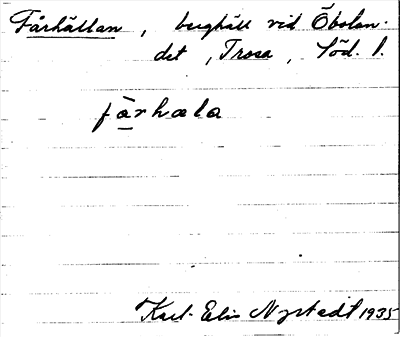 Fårhällan, berghäll vid Öbolan-
det, Trosa, Söd. l.
fårhæla
Karl-Elis Nystedt 1935